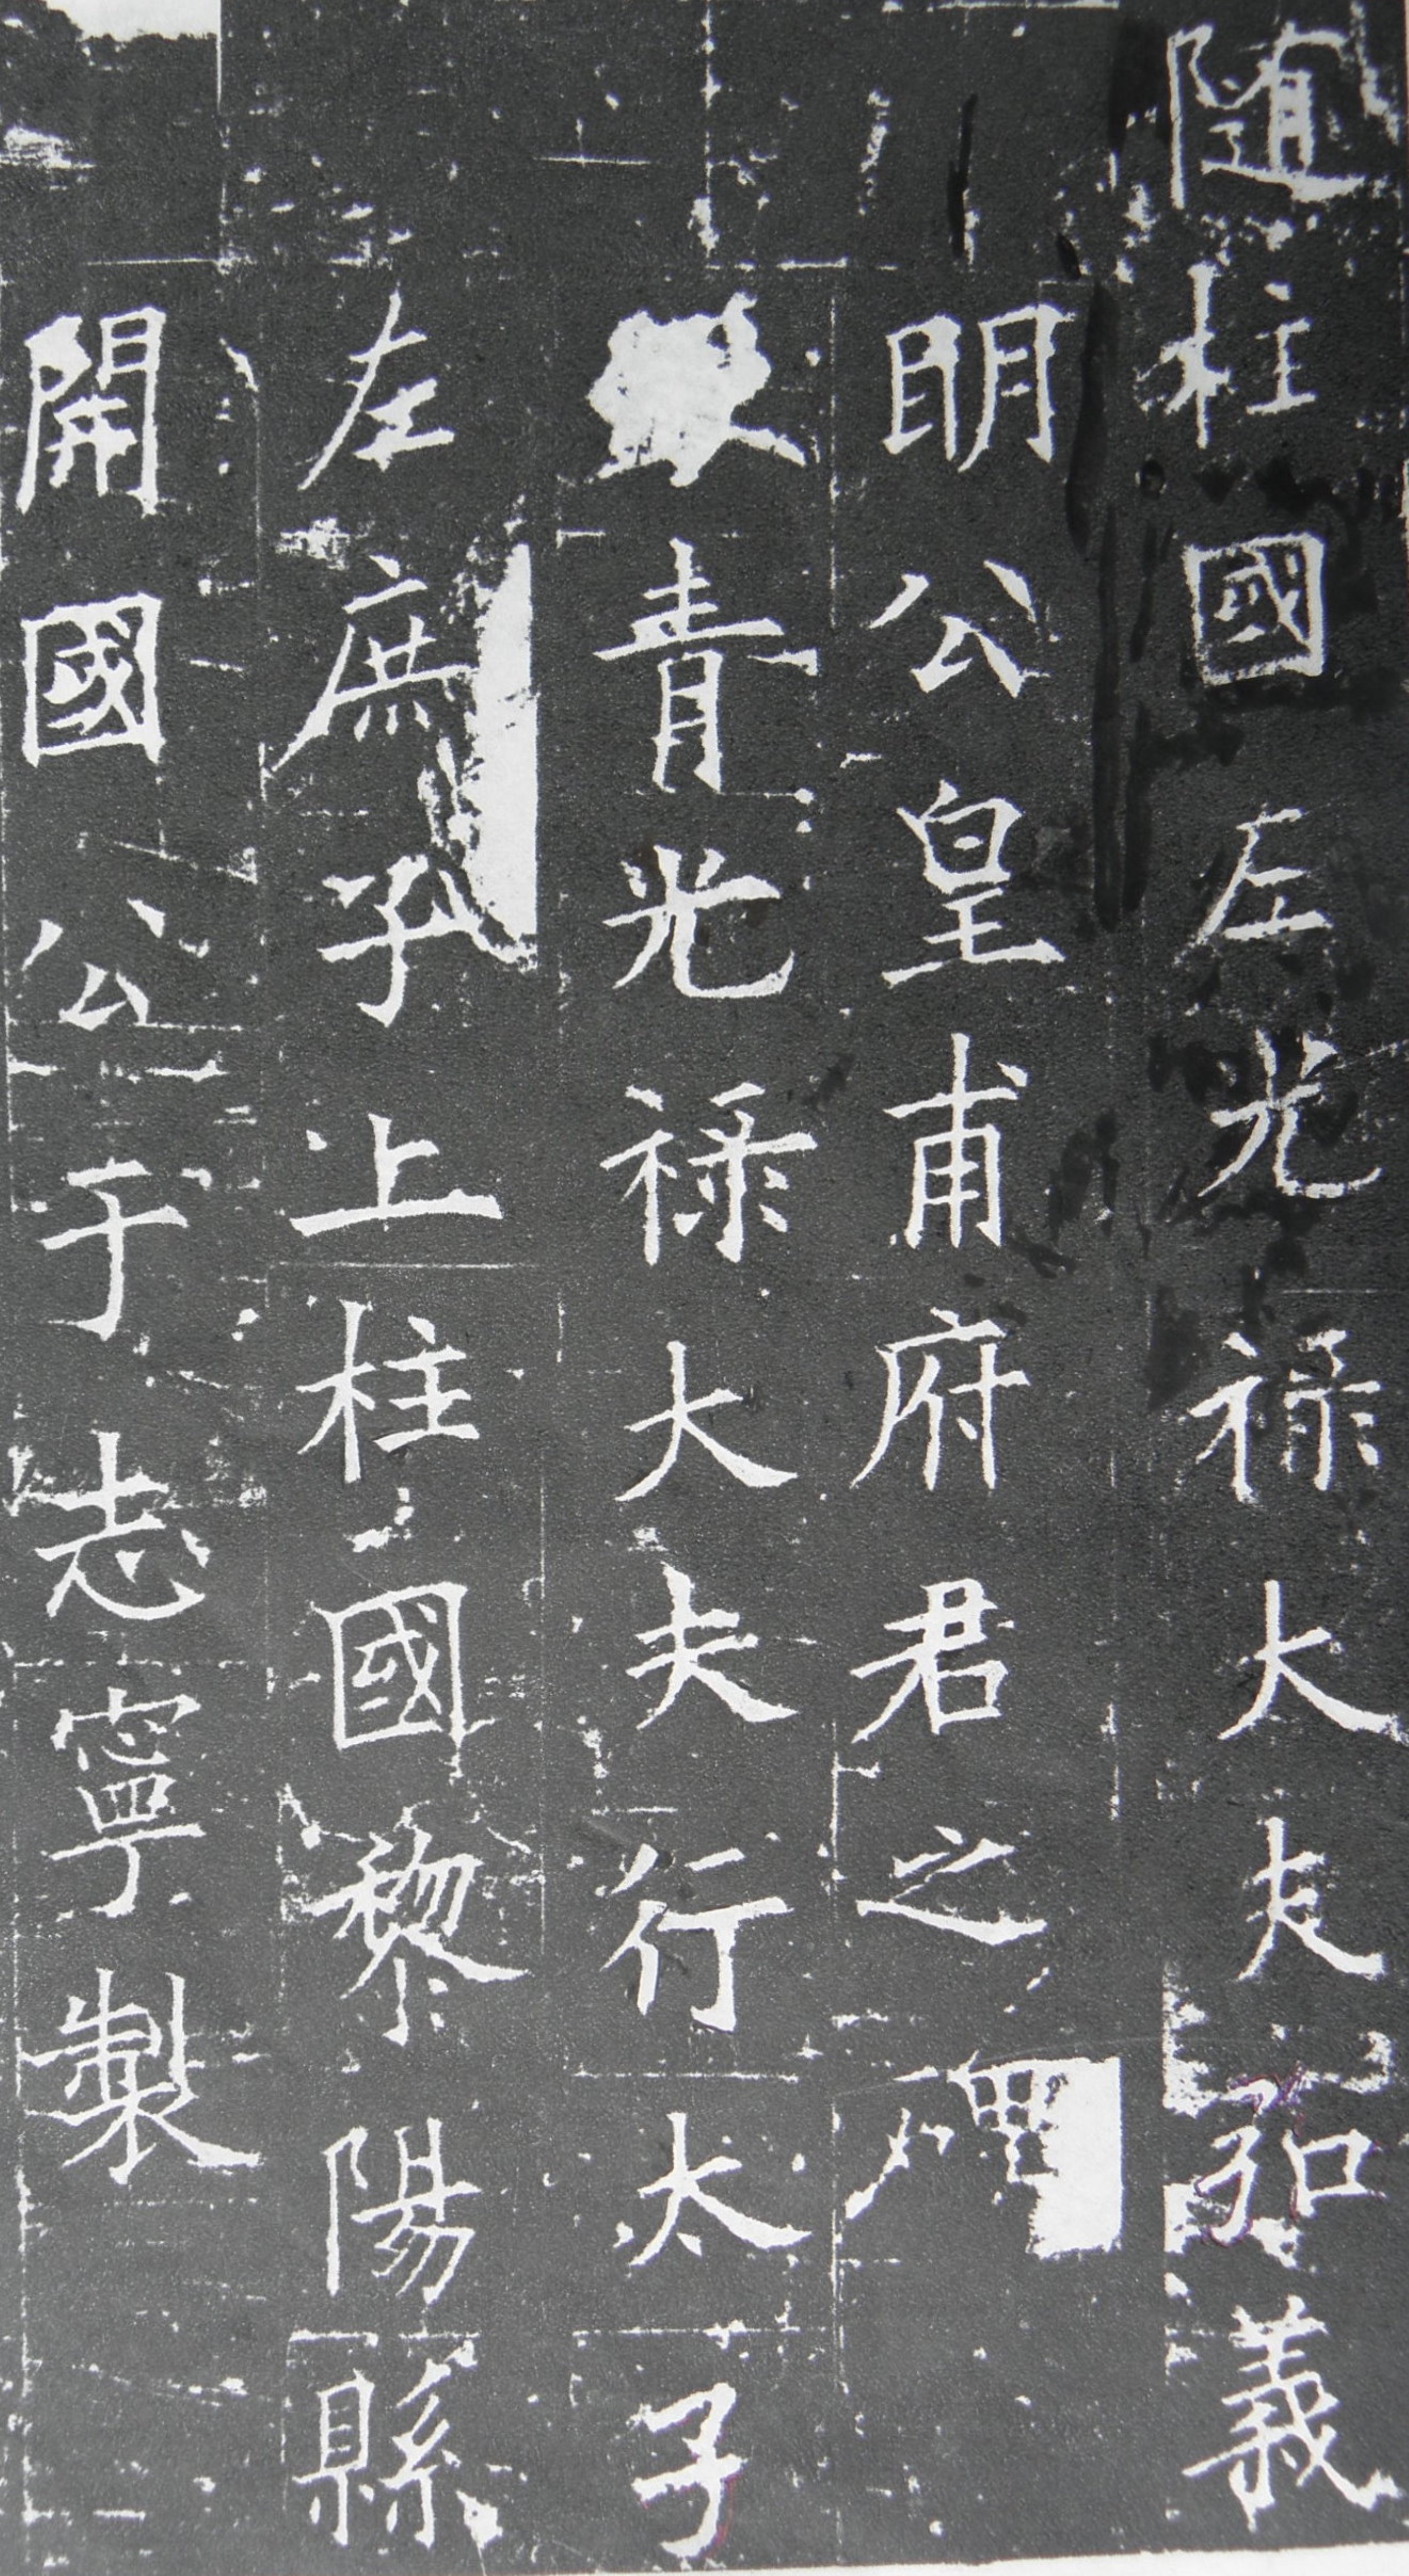 随柱國左光禄大夫弘義
明公皇甫府君之碑
青光禄大夫行太子
左庶子上柱國黎陽縣
開國公于志寧製